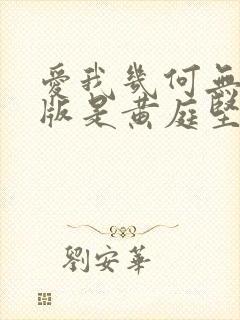 愛我幾何無
版是黃庭堅
劉安華